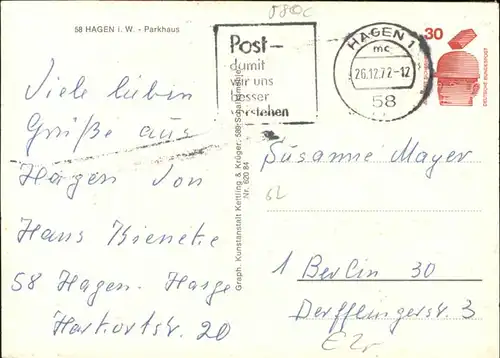 58 HAGEN i. W. - Parkhaus
580c
Post-
damit
wir uns
besser
verstehen
HAGEN 1
mc
26.12.72-12
58
30
DEUTSCHE BUNDESPOST
Viele lieben
Grüße aus
Hagen von
Hans
58 Hagen-Haspe
Harkortstr. 20
Graph. Kunstanstalt Kettling & Krüger, 588 Schalksmühle
Nr. 620 84
Susanne Mayer
1 Berlin 30
Derfflingerstr. 3